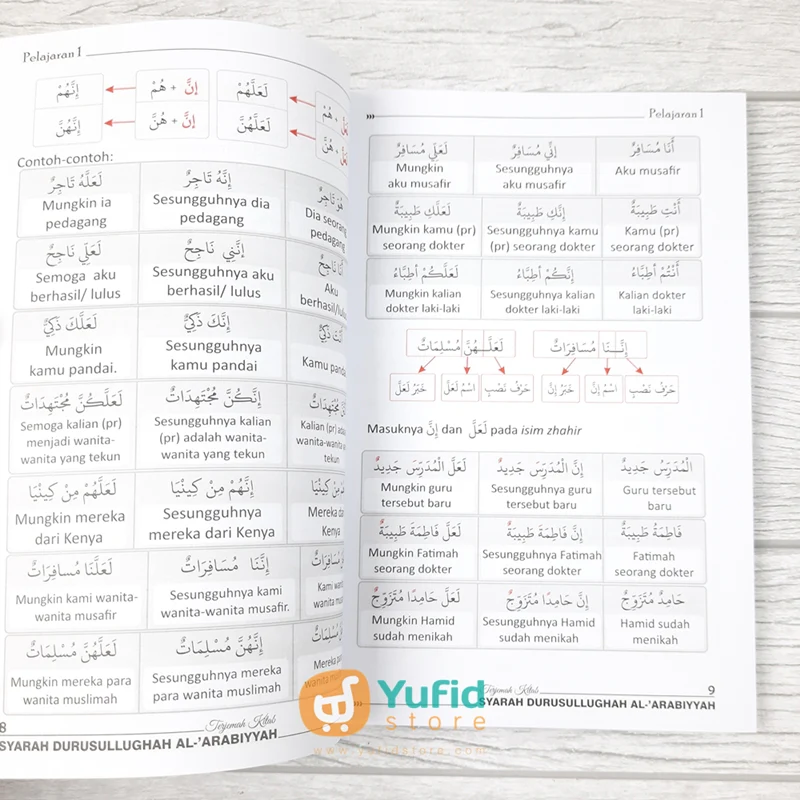 Pelajaran 1
لَعَلَّهُمْ
إِنَّ + هُمْ
إِنَّهُمْ
لَعَلَّهُنَّ
إِنَّ + هُنَّ
إِنَّهُنَّ
Contoh-contoh:
هُوَ تَاجِرٌ
إِنَّهُ تَاجِرٌ
لَعَلَّهُ تَاجِرٌ
Dia seorang
pedagang
Sesungguhnya dia
pedagang
Mungkin ia
pedagang
أَنَا نَاجِحٌ
إِنَّنِي نَاجِحٌ
لَعَلِّي نَاجِحٌ
Aku
berhasil/ lulus
Sesungguhnya aku
berhasil/ lulus
Semoga aku
berhasil/ lulus
أَنْتَ ذَكِيٌّ
إِنَّكَ ذَكِيٌّ
لَعَلَّكَ ذَكِيٌّ
Kamu pandai
Sesungguhnya
kamu pandai
Mungkin
kamu pandai.
إِنَّكُنَّ مُجْتَهِدَاتٌ
لَعَلَّكُنَّ مُجْتَهِدَاتٌ
Kalian (pr)
wanita-wanita
tekun
Sesungguhnya kalian
(pr) adalah wanita-
wanita yang tekun
Semoga kalian (pr)
menjadi wanita-
wanita yang tekun
إِنَّهُمْ مِنْ كِينْيَا
لَعَلَّهُمْ مِنْ كِينْيَا
Mereka
Kenya
Sesungguhnya
mereka dari Kenya
Mungkin mereka
dari Kenya
إِنَّنَا مُسَافِرَاتٌ
لَعَلَّنَا مُسَافِرَاتٌ
Kami
wanita
Sesungguhnya kami
wanita-wanita musafir.
Mungkin kami wanita-
wanita musafir
إِنَّهُنَّ مُسْلِمَاتٌ
لَعَلَّهُنَّ مُسْلِمَاتٌ
Mereka
Sesungguhnya mereka
para wanita muslimah
Mungkin mereka para
wanita muslimah
8
Terjemah Kitab
SYARAH DURUSULLUGHAH AL-'ARABIYYAH
Pelajaran 1
أَنَا مُسَافِرٌ
إِنِّي مُسَافِرٌ
لَعَلِّي مُسَافِرٌ
Aku musafir
Sesungguhnya
aku musafir
Mungkin
aku musafir
أَنْتِ طَبِيبَةٌ
إِنَّكِ طَبِيبَةٌ
لَعَلَّكِ طَبِيبَةٌ
Kamu (pr)
seorang dokter
Sesungguhnya kamu
(pr) seorang dokter
Mungkin kamu (pr)
seorang dokter
أَنْتُمْ أَطِبَّاءُ
إِنَّكُمْ أَطِبَّاءُ
لَعَلَّكُمْ أَطِبَّاءُ
Kalian dokter
laki-laki
Sesungguhnya kalian
dokter laki-laki
Mungkin kalian
dokter laki-laki
إِنَّـنَا مُسَافِرَاتٌ
لَعَلَّـهُنَّ مُسْلِمَاتٌ
حَرْفُ نَصْبٍ
اسْمُ إِنَّ
خَبَرُ إِنَّ
حَرْفُ نَصْبٍ
اسْمُ لَعَلَّ
خَبَرُ لَعَلَّ
Masuknya إِنَّ dan لَعَلَّ pada isim zhahir
الْمُدَرِّسُ جَدِيدٌ
إِنَّ الْمُدَرِّسَ جَدِيدٌ
لَعَلَّ الْمُدَرِّسَ جَدِيدٌ
Guru tersebut
baru
Sesungguhnya guru
tersebut baru
Mungkin guru
tersebut baru
فَاطِمَةُ طَبِيبَةٌ
إِنَّ فَاطِمَةَ طَبِيبَةٌ
لَعَلَّ فَاطِمَةَ طَبِيبَةٌ
Fatimah
seorang dokter
Sesungguhnya Fatimah
seorang dokter
Mungkin Fatimah
seorang dokter
حَامِدٌ مُتَزَوِّجٌ
إِنَّ حَامِدًا مُتَزَوِّجٌ
لَعَلَّ حَامِدًا مُتَزَوِّجٌ
Hamid sudah
menikah
Sesungguhnya Hamid
sudah menikah
Mungkin Hamid
sudah menikah
9
Terjemah Kitab
SYARAH DURUSULLUGHAH AL-'ARABIYYAH
Yufid
store
www.yufidstore.com